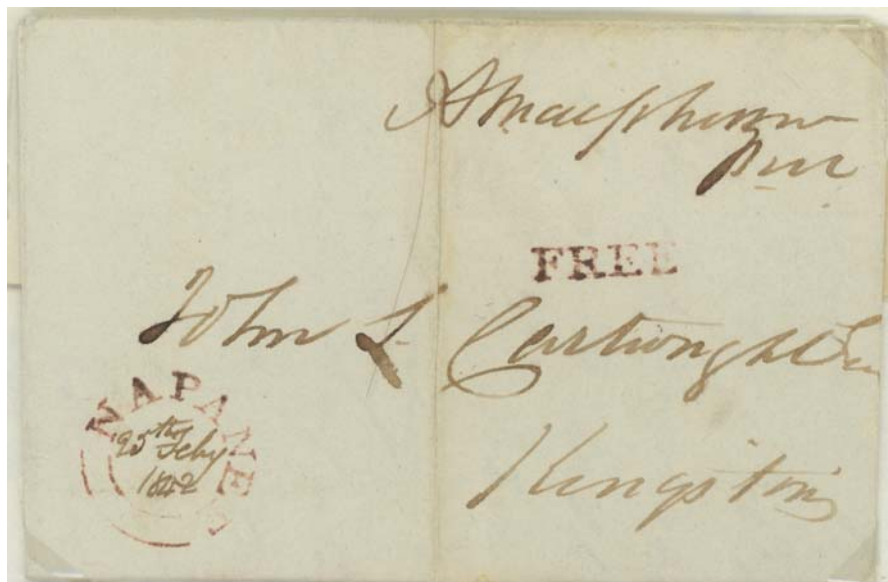 A Macpherson
PM
FREE
John S Cartwright Esq
Kingston
NAPANEE
25th Feby
1842